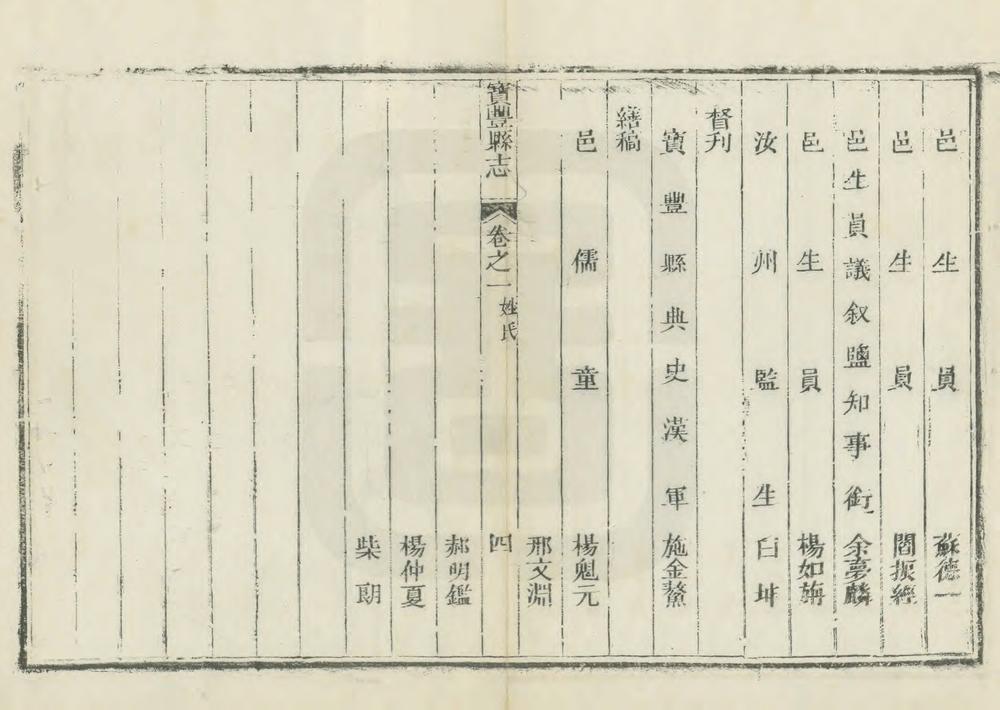 邑生員蘇德一
邑生員閻振經
邑生員議叙鹽知事銜余夢麟
邑生員楊如
汝州監生白坤
督刋
寶豐縣典史漢軍施金鰲
繕稿
邑儒童楊魁元
邢文淵
寶豐縣志 卷之一 姓氏 四
郝明鑑
楊仲夏
柴朗